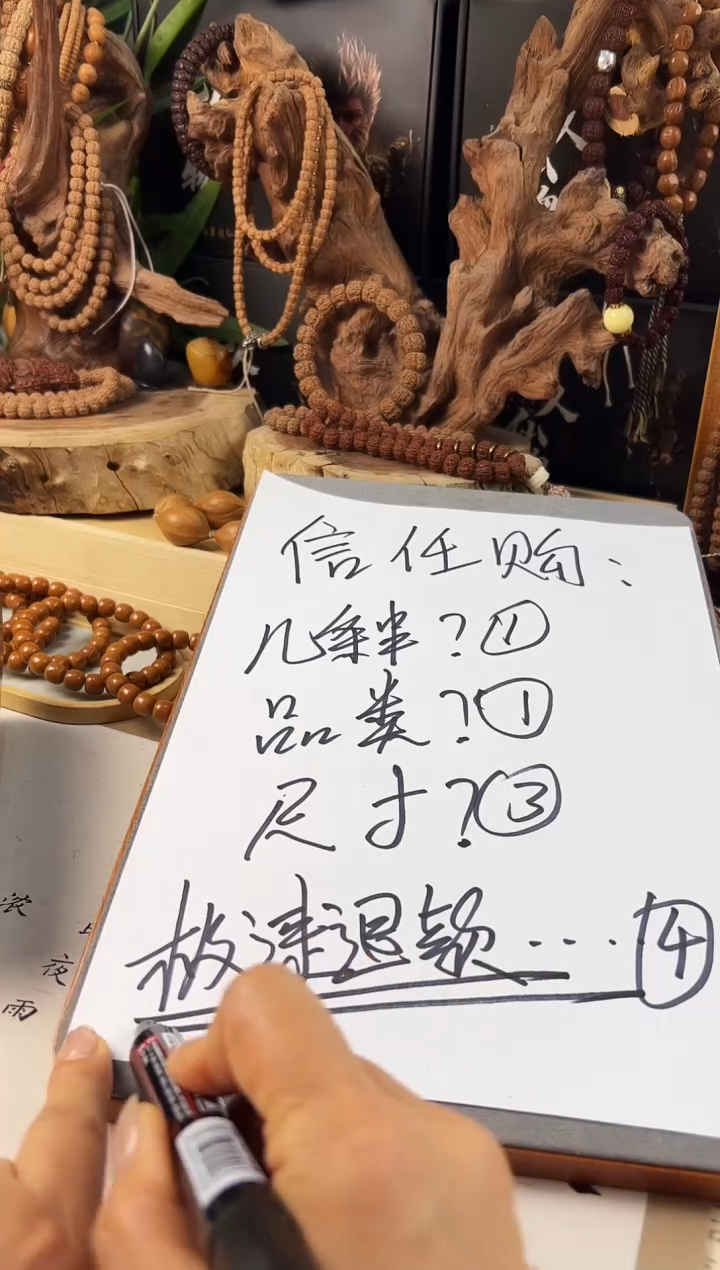 信任购：
几瓣？①
品类？①
尺寸？③
极速退款……④
夜
雨